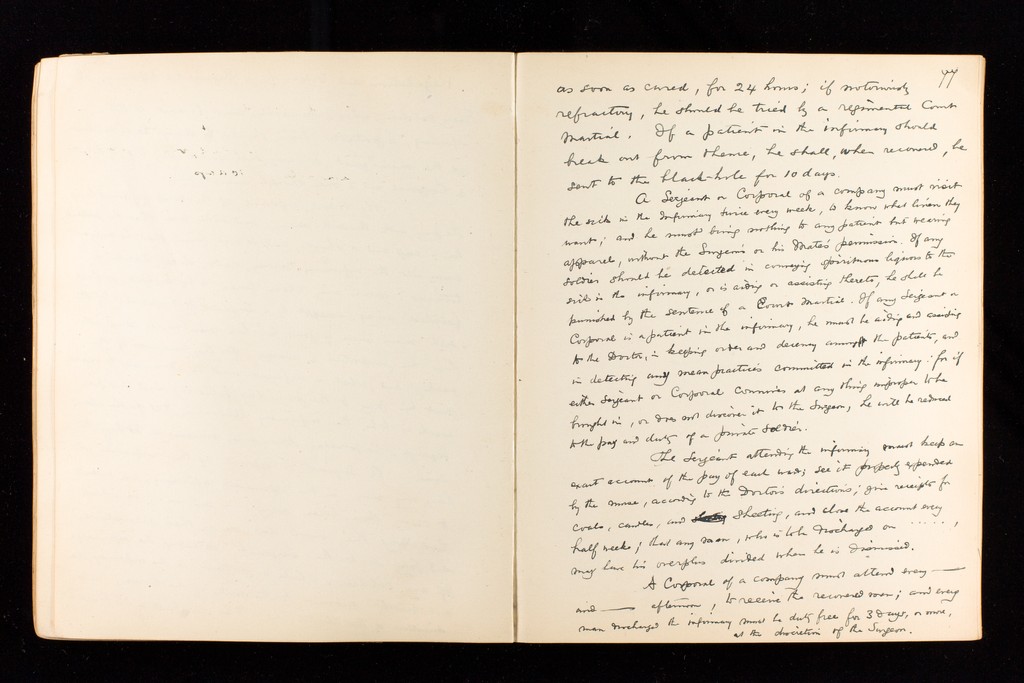 77
as soon as cured, for 24 hours; if notoriously
refractory, he should be tried by a regimental Court
Martial. If a patient in the infirmary should
break out from thence, he shall, when recovered, be
sent to the black-hole for 10 days.
A Serjeant or Corporal of a company must visit
the sick in the Infirmary twice every week, to know what linen they
want; and he must bring nothing to any patient but wearing
apparel, without the Surgeon's or his Mate's permission. If any
soldier should be detected in conveying spirituous liquors to the
sick in the infirmary, or is aiding or assisting thereto, he shall be
punished by the sentence of a Court Martial. If any Serjeant or
Corporal is a patient in the infirmary, he must be aiding and assisting
to the Doctor, in keeping order and decency amongst the patients, and
in detecting any mean practices committed in the infirmary: for if
either Serjeant or Corporal connives at any thing improper to be
brought in, or does not discover it to the Surgeon, he will be reduced
to the pay and duty of a private soldier.
The Serjeant attending the infirmary must keep an
exact account of the pay of each man; see it properly expended
by the nurse, according to the Doctor's directions; give receipts for
coals, candles, and sheeting, and close the account every
half week; that any man, who is to be discharged on . . . . . ,
may have his overplus divided when he is dismissed.
A Corporal of a company must attend every —
and — afternoon, to receive the recovered men; and every
man discharged the infirmary must be duty free for 3 days, or more,
at the discretion of the Surgeon.